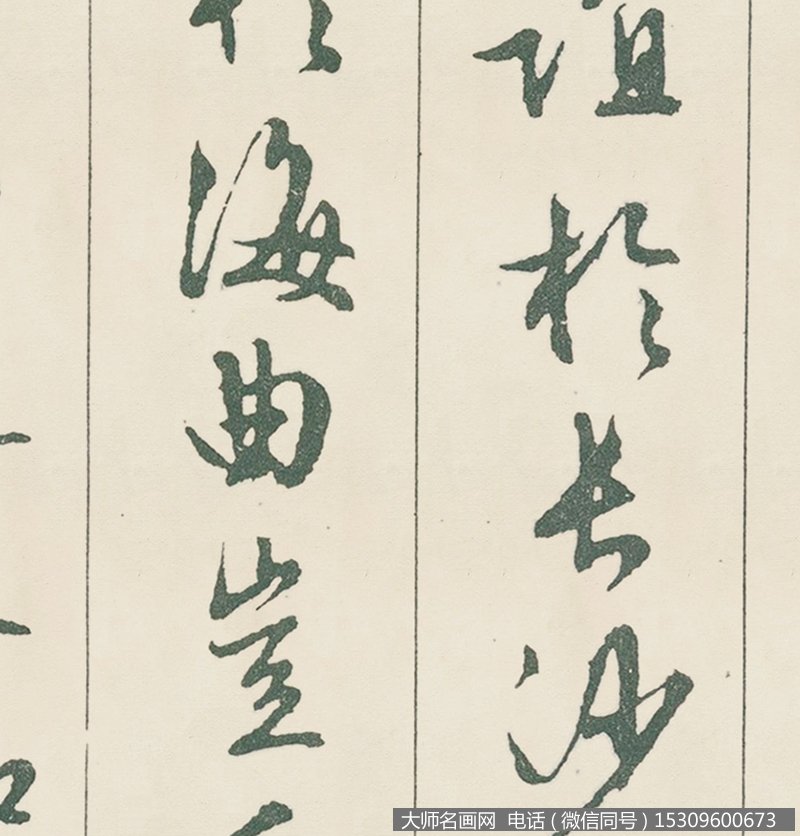 誼於長沙
於海曲豈
大师名画网 电话（微信同号）15309600673